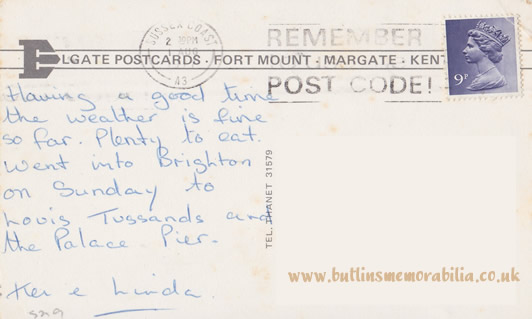 SUSSEX COAST
REMEMBER
ELGATE POSTCARDS · FORT MOUNT · MARGATE · KENT
A3
POST CODE!
9P
Having a good time
the weather is fine
so far. Plenty to eat.
Went into Brighton
on Sunday to
Louis Tussands and
the Palace Pier.
Ken e Linda.
TEL. THANET 31579
www.butlinsmemorabilia.co.uk